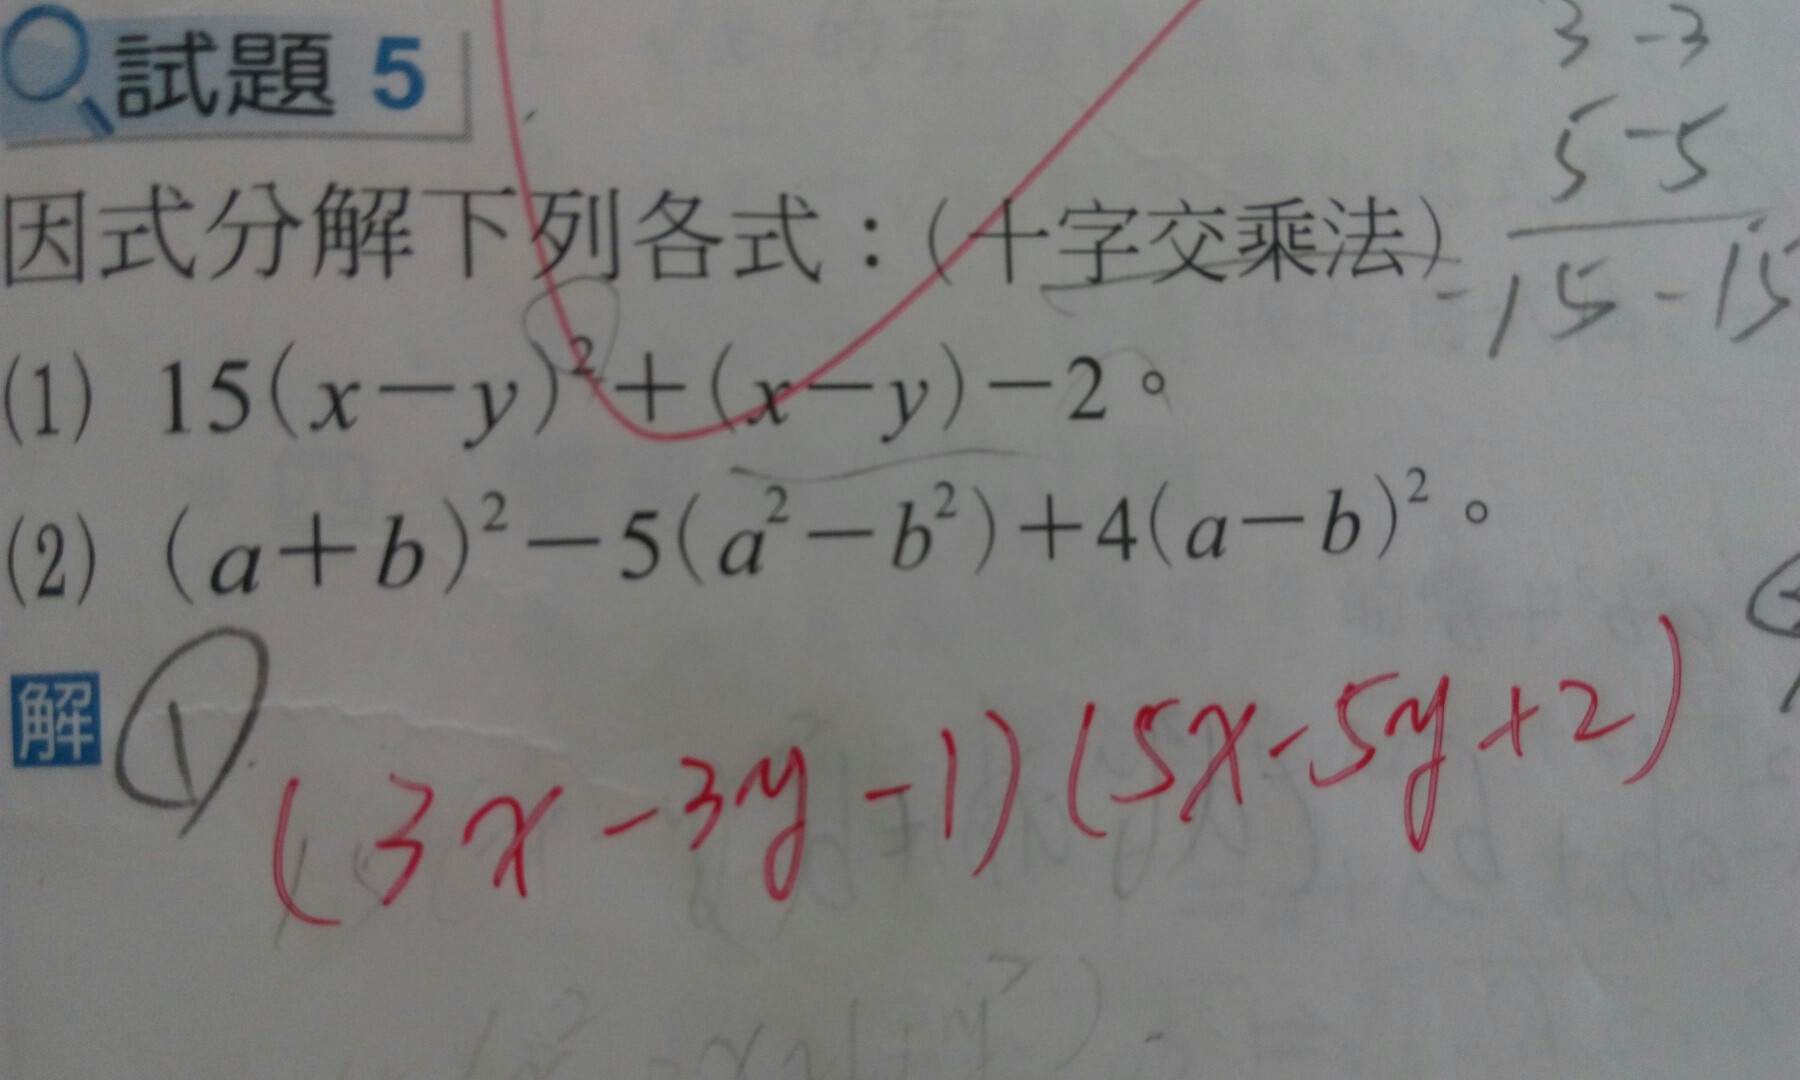 試題 5
3 -3
5 -5
-15 -15
因式分解下列各式：(十字交乘法)
(1) 15(x－y)²＋(x－y)－2。
(2) (a＋b)²－5(a²－b²)＋4(a－b)²。
解 ① (3x-3y-1)(5x-5y+2)